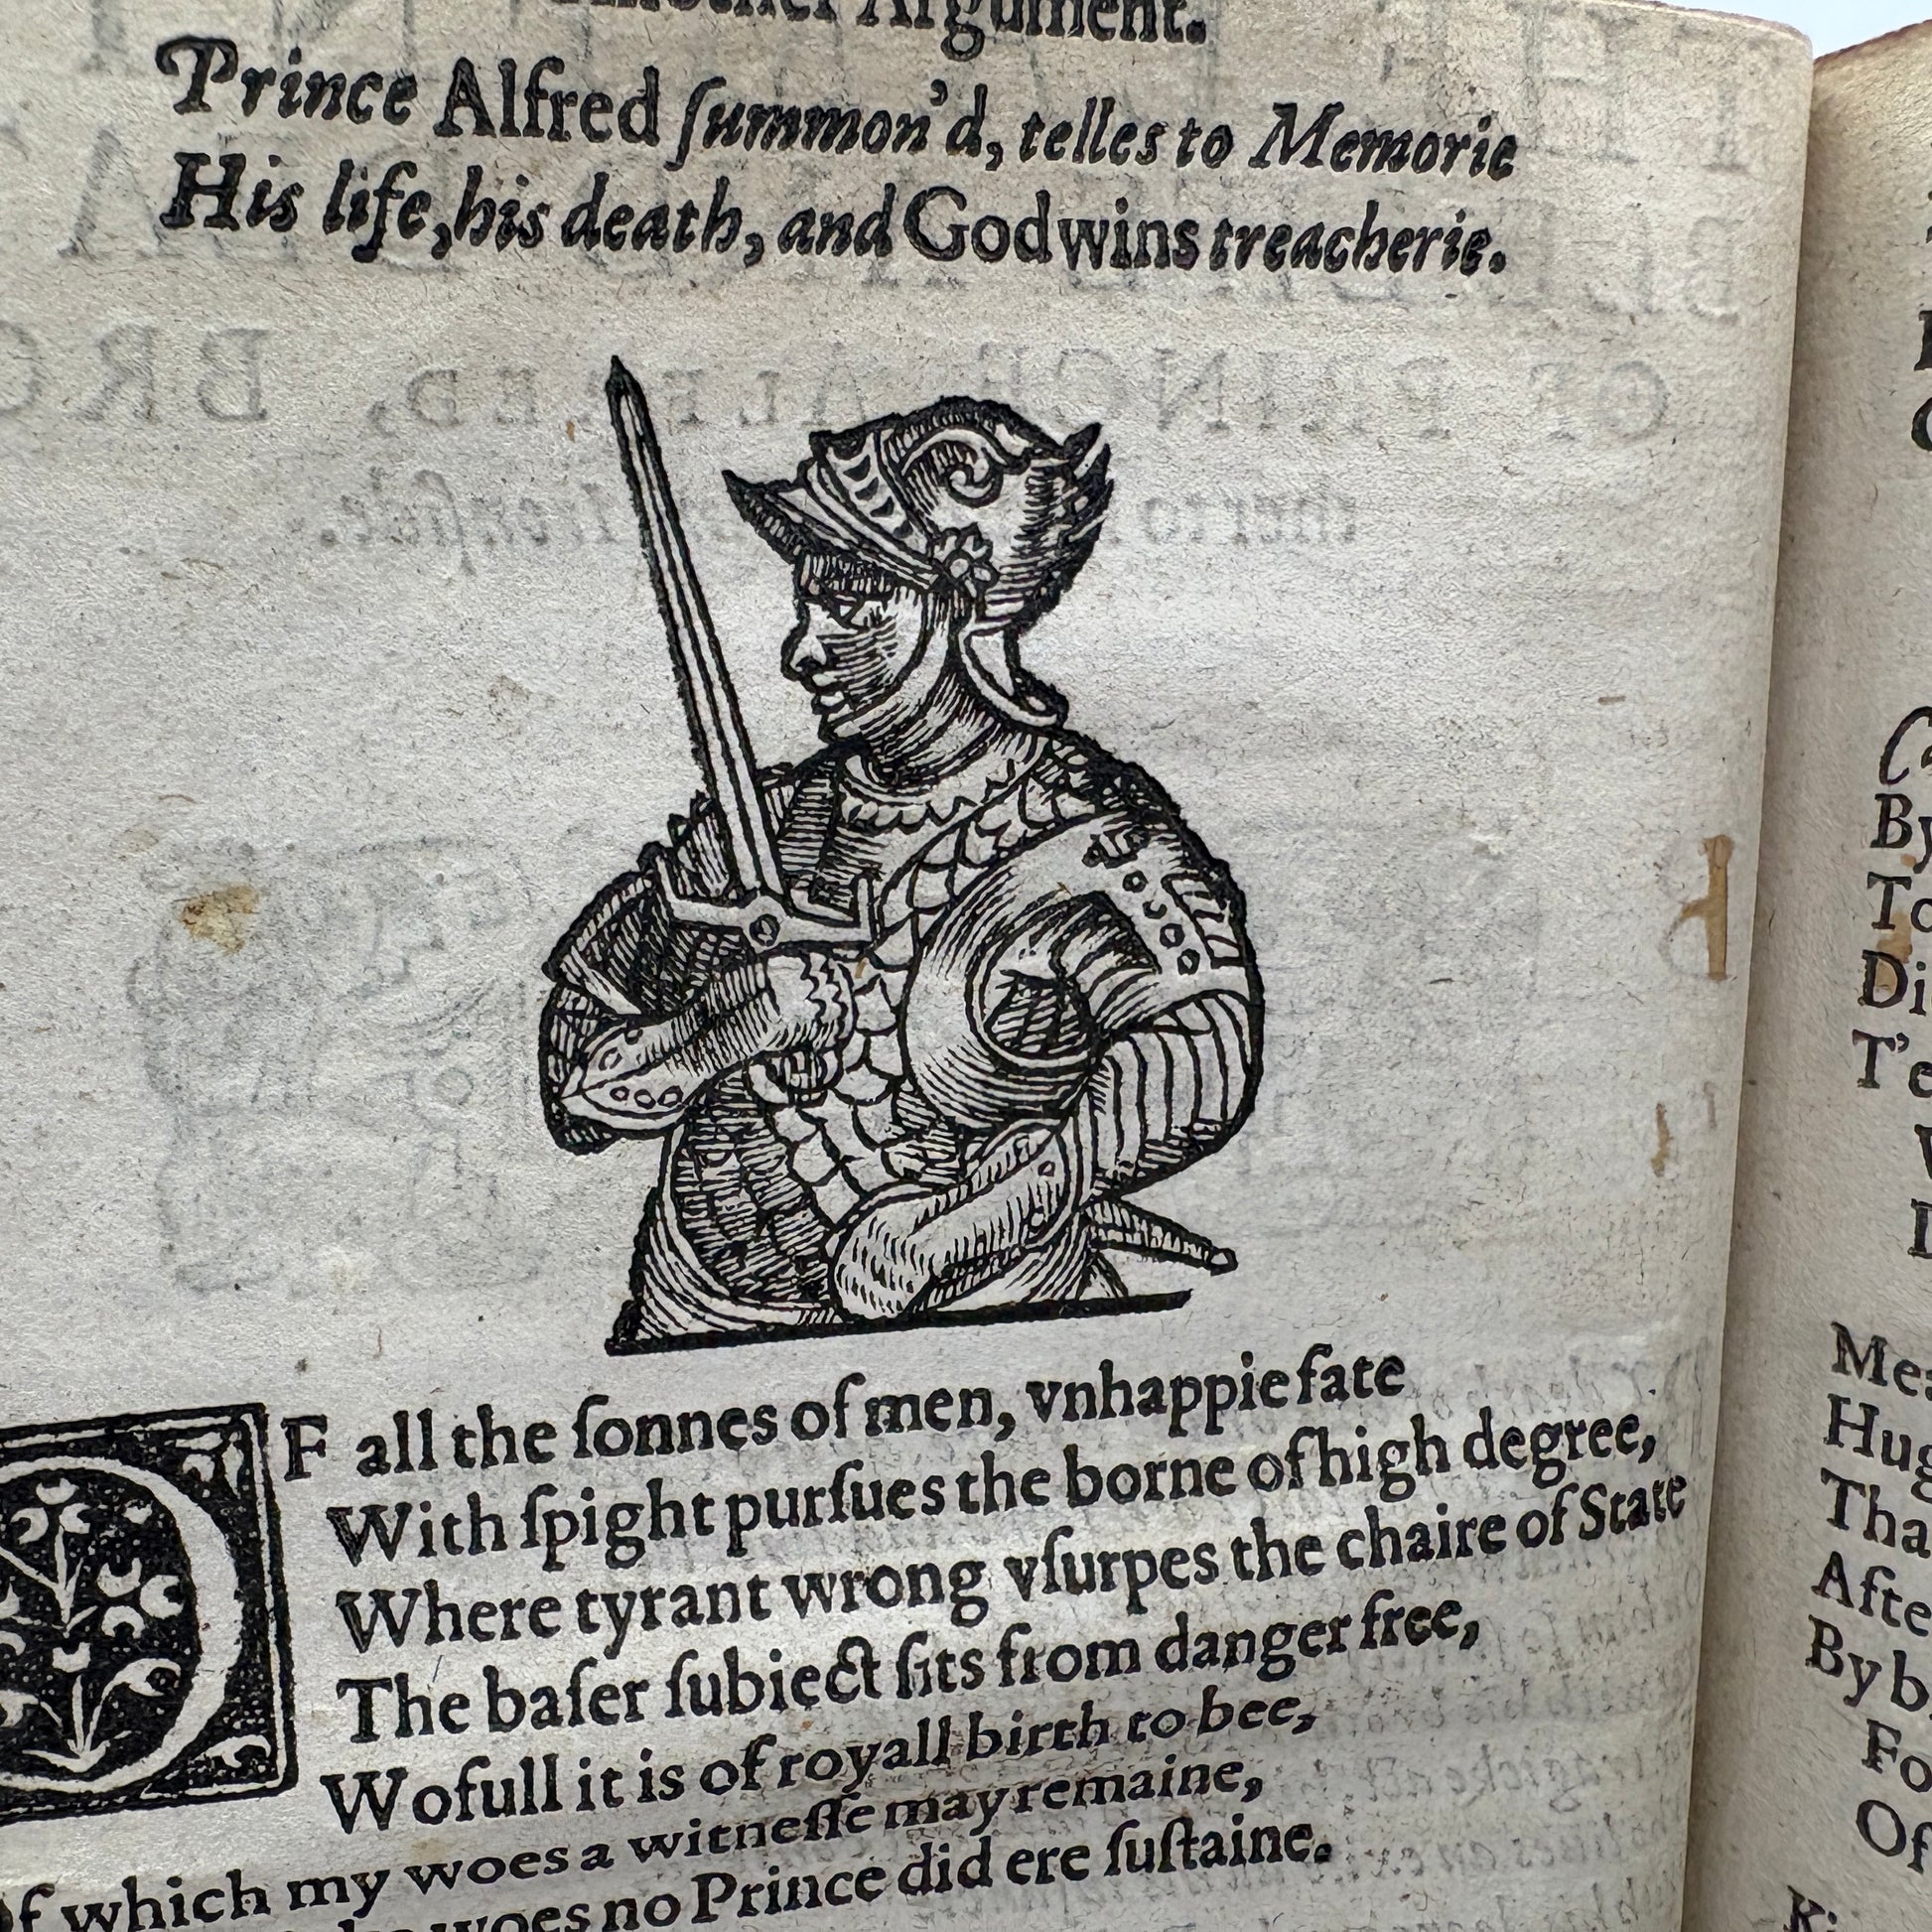 Another Argument.
Prince Alfred ſummon'd, telles to Memorie
His life, his death, and Godwins treacherie.
OF all the ſonnes of men, vnhappie fate
With ſpight purſues the borne of high degree,
Where tyrant wrong vſurpes the chaire of State
The baſer ſubiect ſits from danger free,
Wofull it is of royall birth to bee,
Of which my woes a witneſſe may remaine,
woes no Prince did ere ſuſtaine.
By
To
Di
T'e
Hug
Tha
Afte
By b
Fo
Of